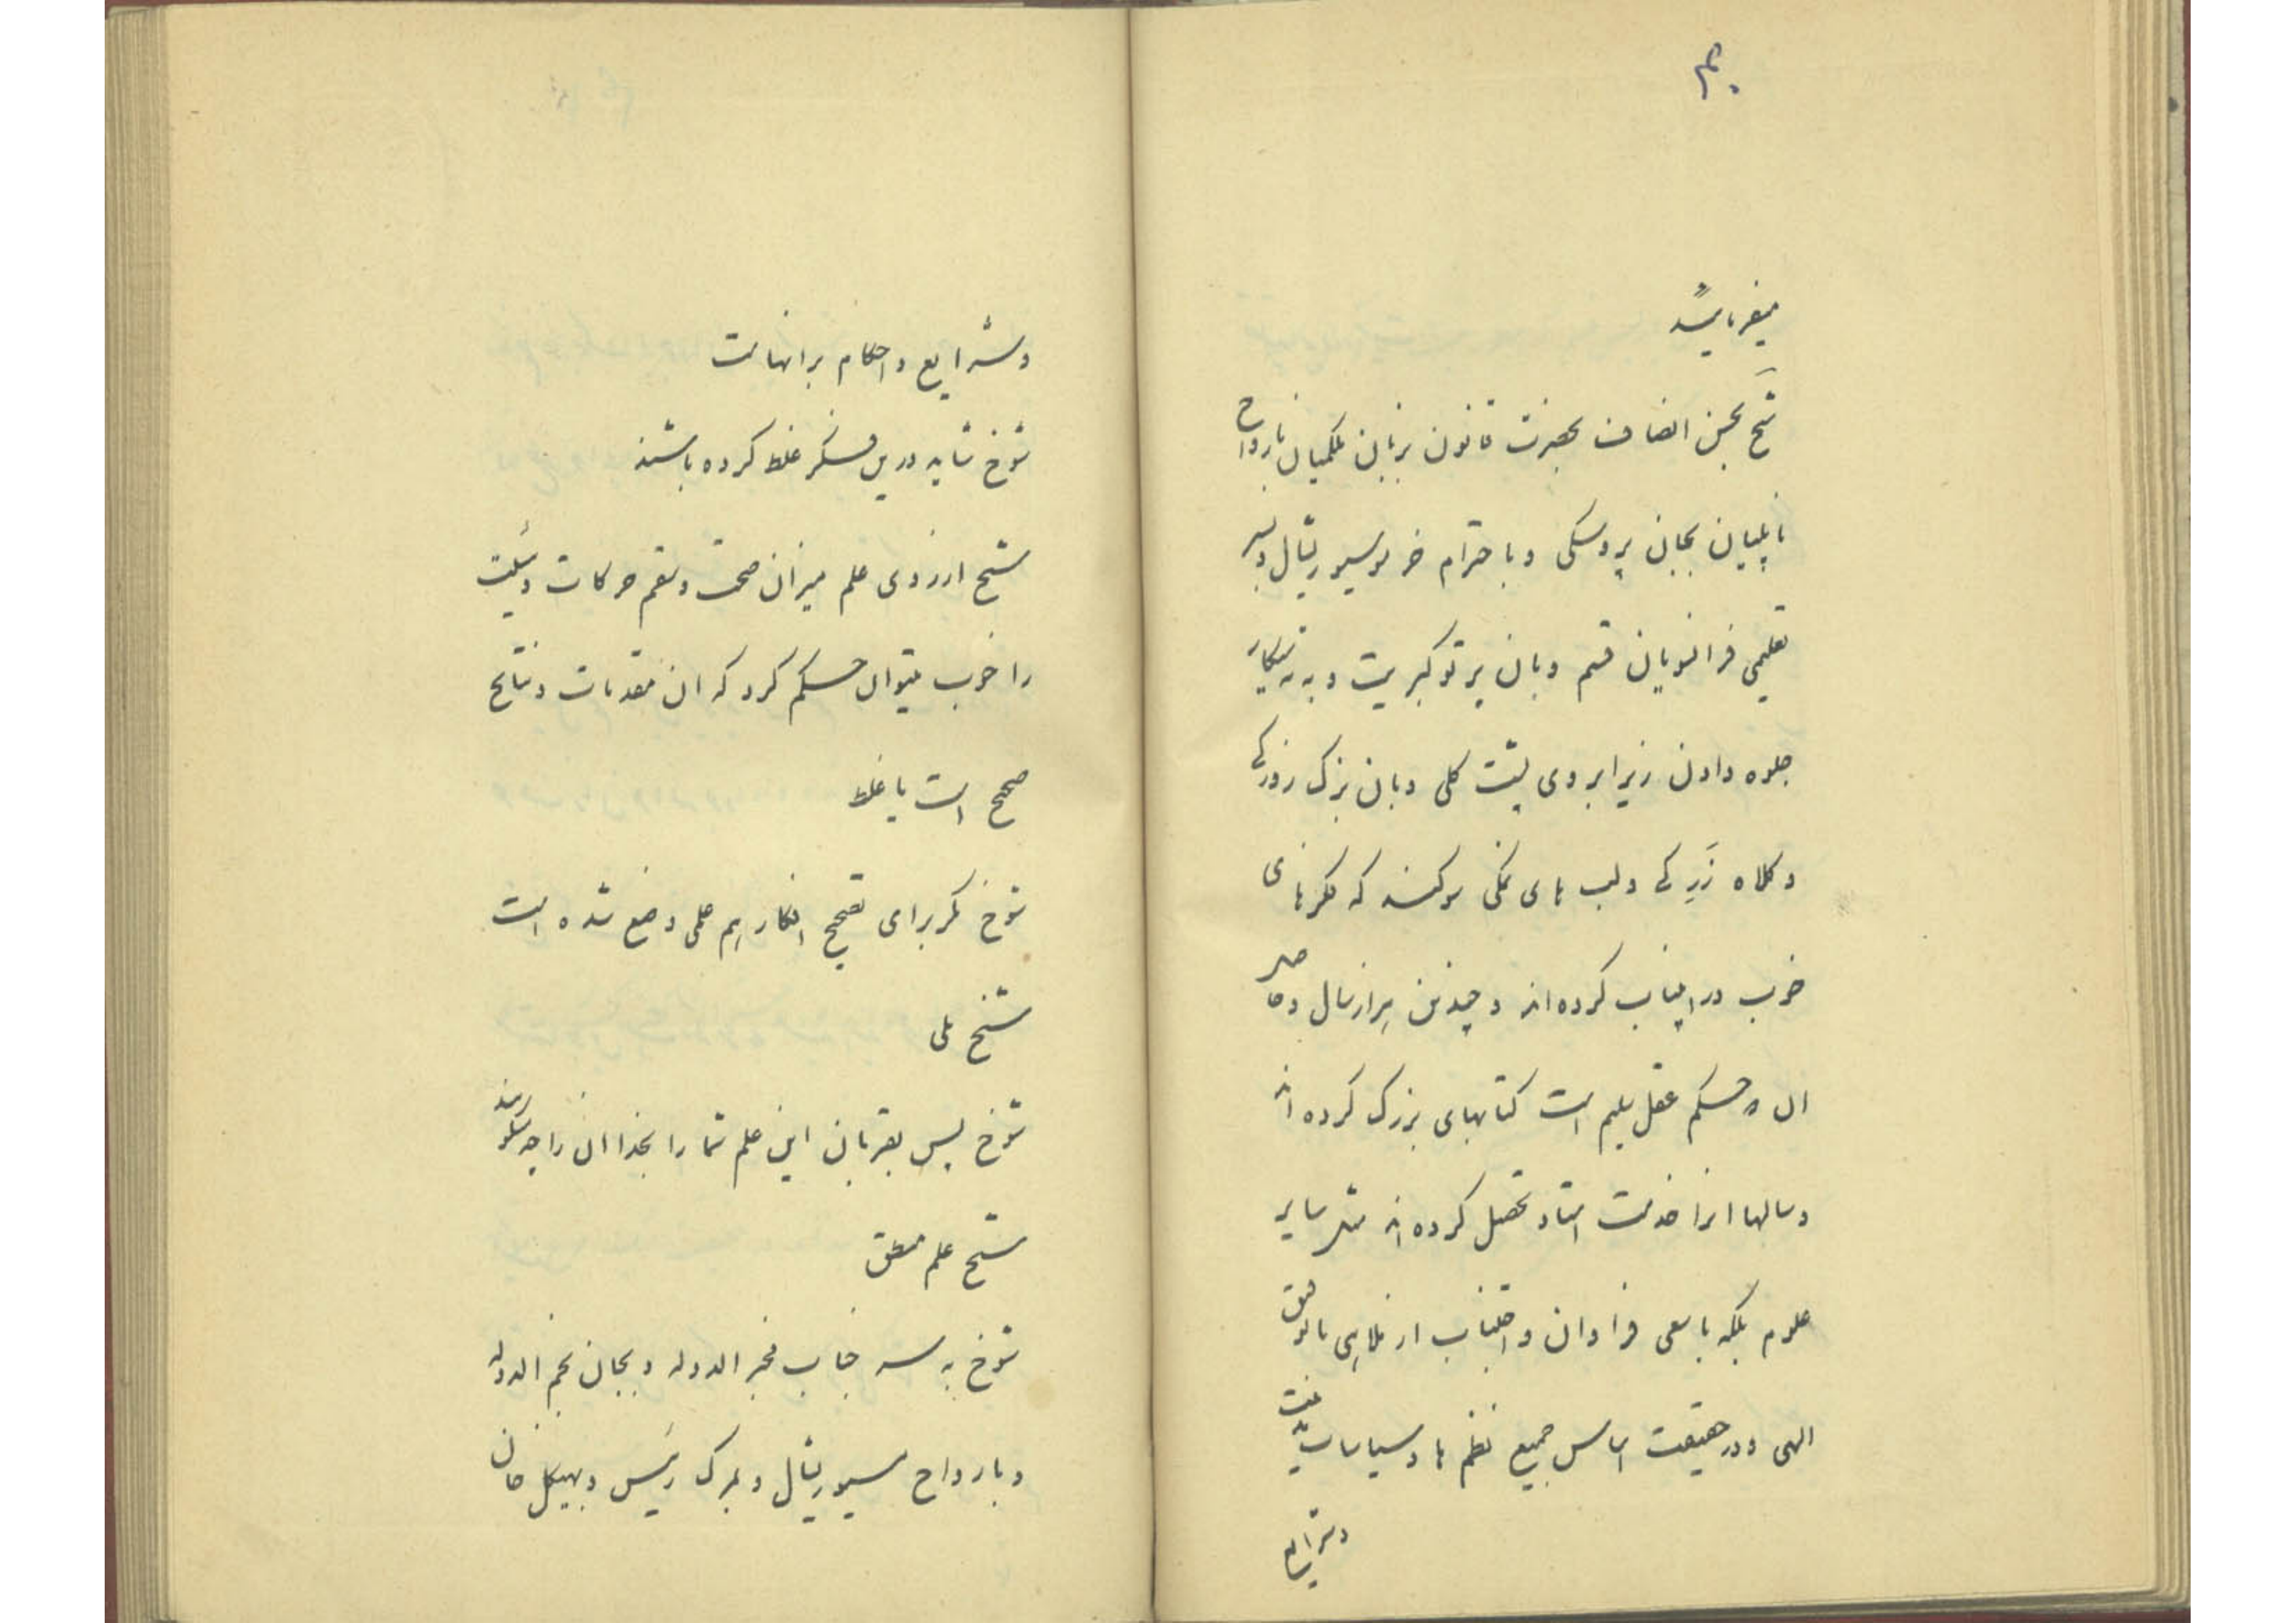 ۴۰
میفرمائید
شیخ بحسن انصاف بحضرت قانون بزبان ملکمیان بارواح
ناپلیان بجان پروسکی و باحترام خر موسیو ریشال و بسر
تعلیمی فرانسویان قسم وبان پرتو کبریت و به
جلوه دادن زیر ابروی پشت کلی وبان بزک زورکی
و کلاه زرکی ولب های نمکی سوکند که فکرهای
خوب در اینباب کرده اند و چندین هزار سال
ان حکم عقل سلیم است کتابهای بزرک کرده اند
وسالها انرا خدمت استاد تحصیل کرده اند مثل سایر
علوم بلکه با سعی فراوان و اجتناب از ملاهی با توفیق
الهی و در حقیقت اساس جمیع نظم ها و سیاسات
وشرایع
وشرایع و احکام برانهاست
شوخ شاید درین فکر غلط کرده باشند
شیخ ازروی علم میزان صحت وسقم حرکات
را خوب میتوان حکم کرد که ان مقدمات و نتایج
صحیح است یا غلط
شوخ مکر برای تصحیح افکار هم علمی وضع شده است
شیخ بلی
شوخ پس بقربان این علم شما را بخدا ان را چه میکویند
شیخ علم منطق
شوخ به سر جناب مخبر الدوله و بجان نجم الدوله
وبارواح مسیو ریشال و بمرک رئیس و بهیکل خان